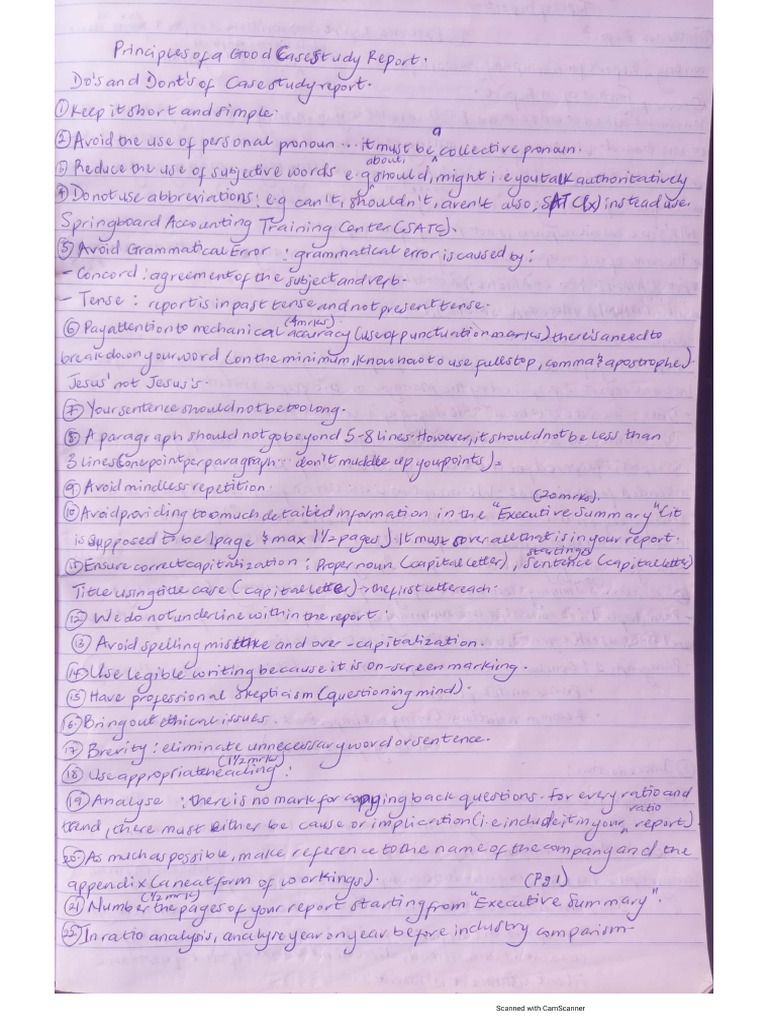 Principles of a Good Case Study Report.
Do's and Dont's of Case study report.
① Keep it short and simple.
② Avoid the use of personal pronoun ... it must be a collective pronoun.
③ Reduce the use of subjective words e.g about, should, might i.e you talk authoritatively
④ Do not use abbreviations: e.g can't, shouldn't, aren't also; SATC(x) instead use
Springboard Accounting Training Center (SATC).
⑤ Avoid Grammatical Error : grammatical error is caused by:
- Concord : agreement of the subject and verb.
- Tense : report is in past tense and not present tense.
⑥ Pay attention to mechanical accuracy (4mrks) (use of punctuation marks) there's a need to
break down your word (on the minimum, know how to use full stop, comma & apostrophe).
Jesus' not Jesus's.
⑦ Your sentence should not be too long.
⑧ A paragraph should not go beyond 5-8 lines. However, it should not be less than
3 lines (one point per paragraph ... don't muddle up your points).
⑨ Avoid mindless repetition.
⑩ Avoid providing too much detailed information in the "Executive Summary" (20mrks). (it
is supposed to be 1page & max 1½ pages). It must cover all that is in your report.
⑪ Ensure correct capitalization : Proper noun (capital letter), starting sentence (capital letter)
Title using title case (capital letter) → the first letter each.
⑫ We do not underline within the report.
⑬ Avoid spelling mistake and over-capitalization.
⑭ Use legible writing because it is on-screen marking.
⑮ Have professional skepticism (questioning mind).
⑯ Bring out ethical issues.
⑰ Brevity : eliminate unnecessary word or sentence.
⑱ Use appropriate heading (1½mrks) :
⑲ Analyse : there is no mark for copying back questions. For every ratio and
trend, there must either be cause or implication (i.e include it in your ratio report)
⑳ As much as possible, make reference to the name of the company and the
appendix (a neat form of workings).
㉑ Number (½mrk) the pages of your report starting from "Executive Summary" (Pg 1).
㉒ In ratio analysis, analyse year on year before industry comparism.
Scanned with CamScanner